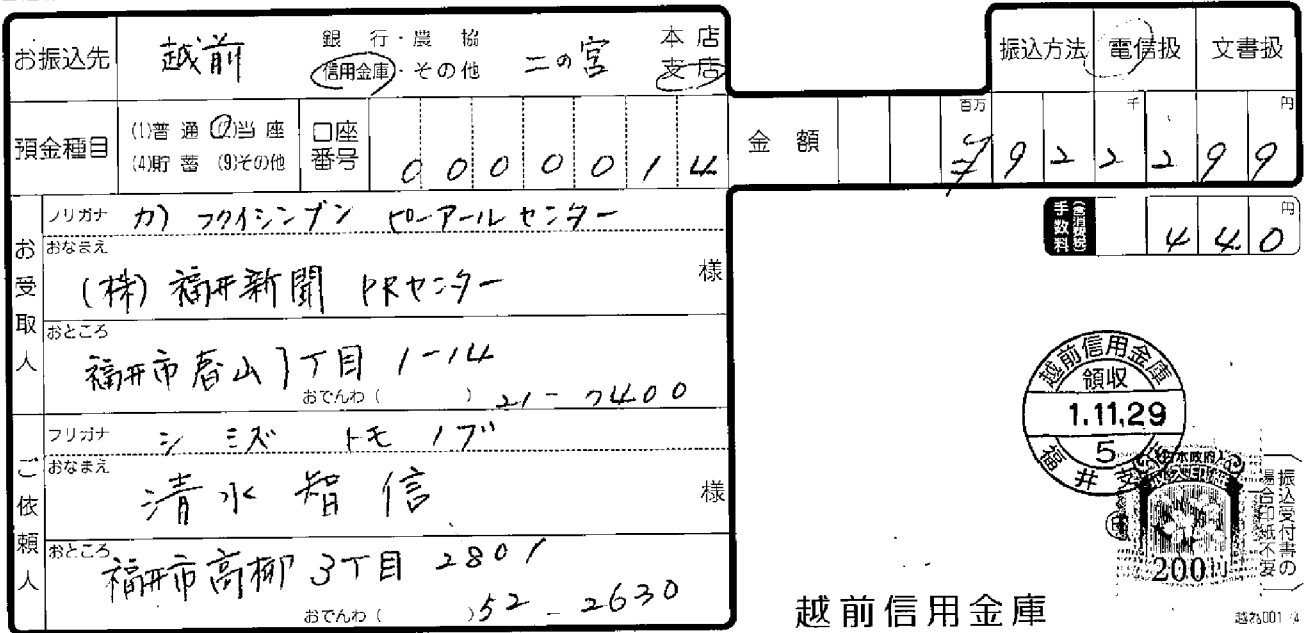 お振込先 越前 銀行・農協 信用金庫・その他 二の宮 本店 支店
振込方法 電信扱 文書扱
預金種目 (1)普通 (2)当座 (4)貯蓄 (9)その他 口座番号 0000014
金額 百万 千 円 ¥922299
手数料 (含消費税) 円 440
お受取人
フリガナ カ) フクイシンブン ピーアールセンター
おなまえ (株)福井新聞 PRセンター 様
おところ 福井市春山1丁目1-14
おでんわ( ) 21-7400
ご依頼人
フリガナ シミズ トモノブ
おなまえ 清水智信 様
おところ 福井市高柳3丁目2801
おでんわ( ) 52-2630
越前信用金庫
領収
1.11.29
5
福井支
日本政府
200円
振込受付書の場合印紙不要
越前信用金庫